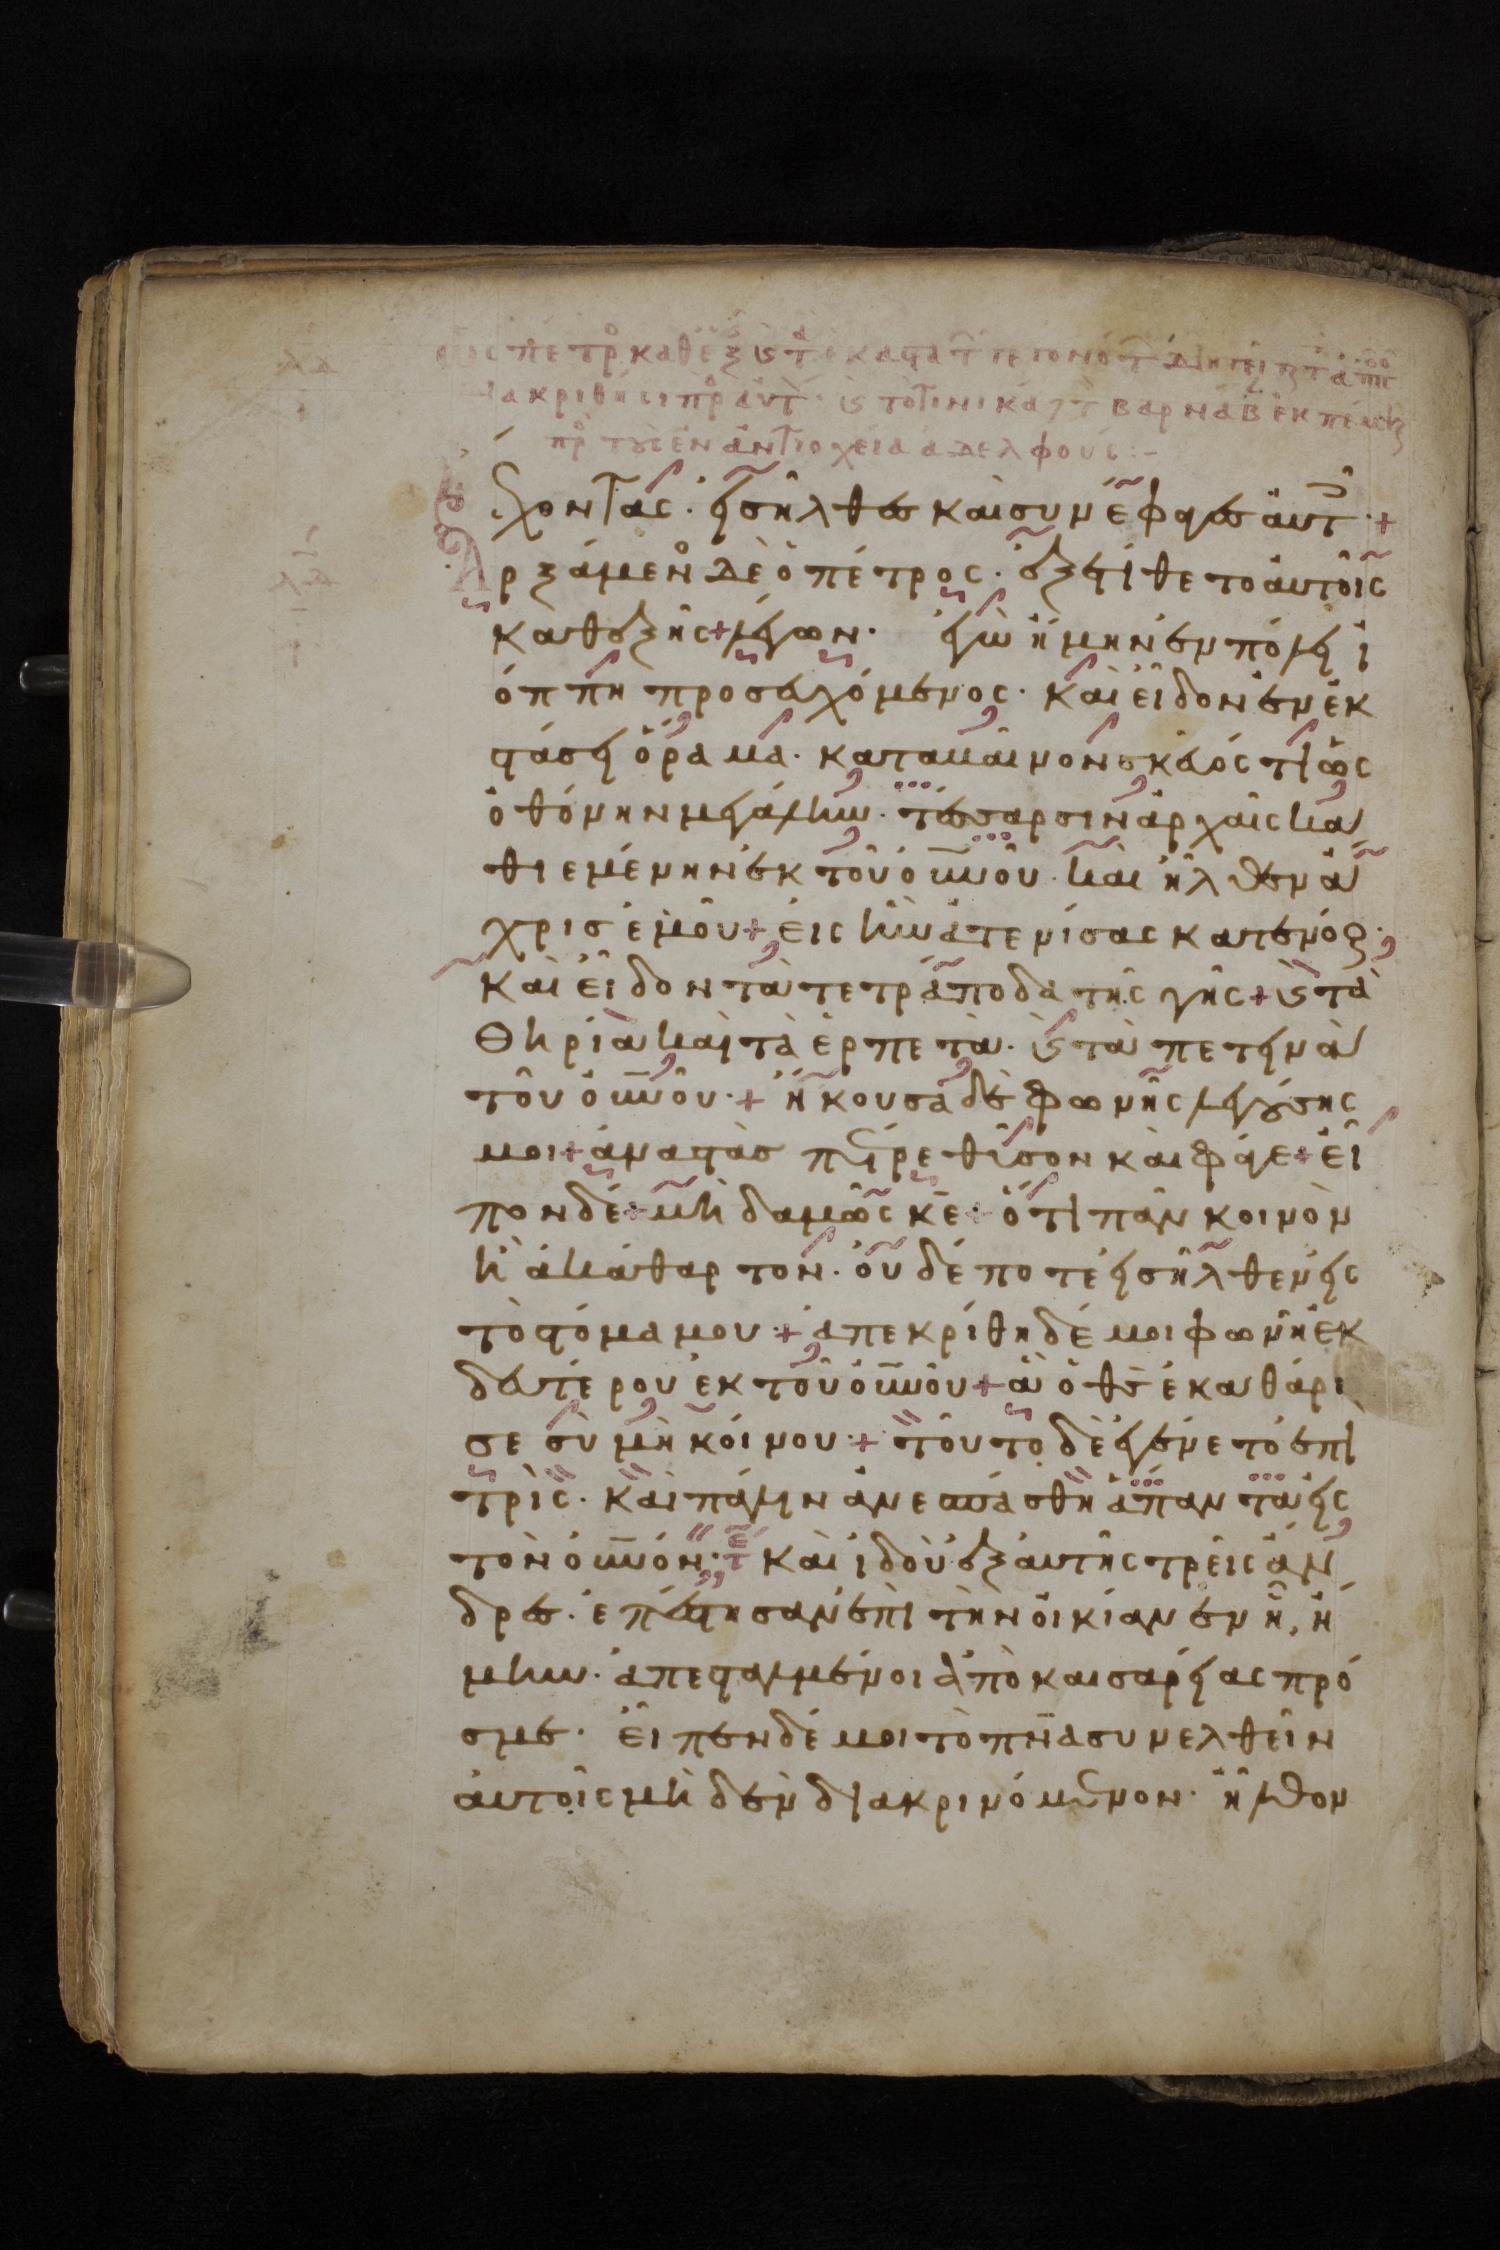 πέτρ καθεξ ϗ τ κατ
διακριθησι πρ αυτ· ϗ το τινικα τ βαρνάβ ἐκπέμ
πρ τοὺς ἐν ἀντιοχεία ἀδελφούς :-
ἔχοντας· εἰσῆλθες καὶ συνέφαγες αὐτοῖς +
Ἀρξάμενος δὲ ὁ πέτρος· ἐξετίθετο αὐτοῖς
καθεξῆς + λέγων· ἐγὼ ἤμην ἐν πόλει ἰ
όππη προσευχόμενος· καὶ εἶδον ἐν ἐκ
στάσει ὅραμα· καταβαῖνον σκεῦός τι ὡς
ὀθόνην μεγάλην· τέσσαρσιν ἀρχαῖς κα
θιεμένην ἐκ τοῦ οὐνοῦ· καὶ ἦλθεν ἄ
χρις ἐμοῦ + εἰς ἣν ἀτενίσας κατενόουν·
καὶ εἶδον τὰ τετράποδα τῆς γῆς + ϗ τὰ
θηρία καὶ τὰ ἑρπετὰ· ϗ τὰ πετεινὰ
τοῦ οὐνοῦ· + ἤκουσα δὲ φωνῆς λεγούσης
μοι + ἀναστὰς πέτρε θῦσον καὶ φάγε + εἶ
πον δέ + μηδαμῶς κε + ὅτι πᾶν κοινὸν
ἢ ἀκάθαρτον· οὐδέποτε εἰσῆλθεν εἰς
τὸ στόμα μου + ἀπεκρίθη δέ μοι φωνὴ ἐκ
δευτέρου ἐκ τοῦ οὐνοῦ + ἃ ὁ θς ἐκαθάρι
σε σὺ μὴ κοίνου· + τοῦτο δὲ ἐγένετο ἐπὶ
τρίς· καὶ πάλιν ἀνεσπάσθη ἅπαντα εἰς
τὸν οὐνόν· καὶ ἰδοὺ ἐξαυτῆς τρεῖς ἄν
δρες· ἐπέστησαν ἐπὶ τὴν οἰκίαν ἐν ᾗ, ἤ
μην· ἀπεσταλμένοι ἀπὸ καισαρείας πρό
ς με· εἶπεν δέ μοι τὸ πνα συνελθεῖν
αὐτοῖς μηδὲν διακρινόμενον· ἦλθον